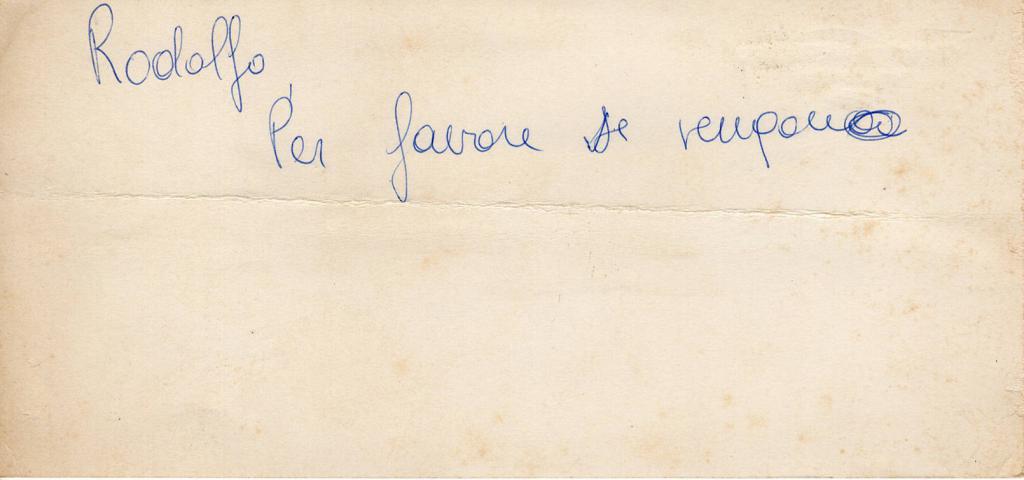 Rodolfo,
Per favore se vengono